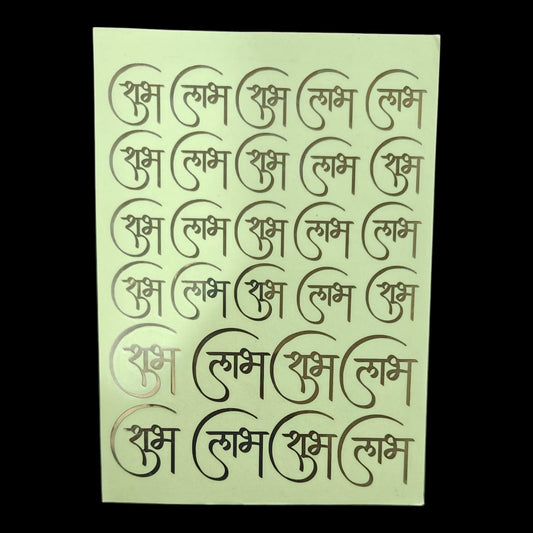 शुभ लाभ शुभ लाभ लाभ
शुभ लाभ शुभ लाभ शुभ
शुभ लाभ शुभ लाभ लाभ
शुभ लाभ शुभ लाभ शुभ
शुभ लाभ शुभ लाभ
शुभ लाभ शुभ लाभ